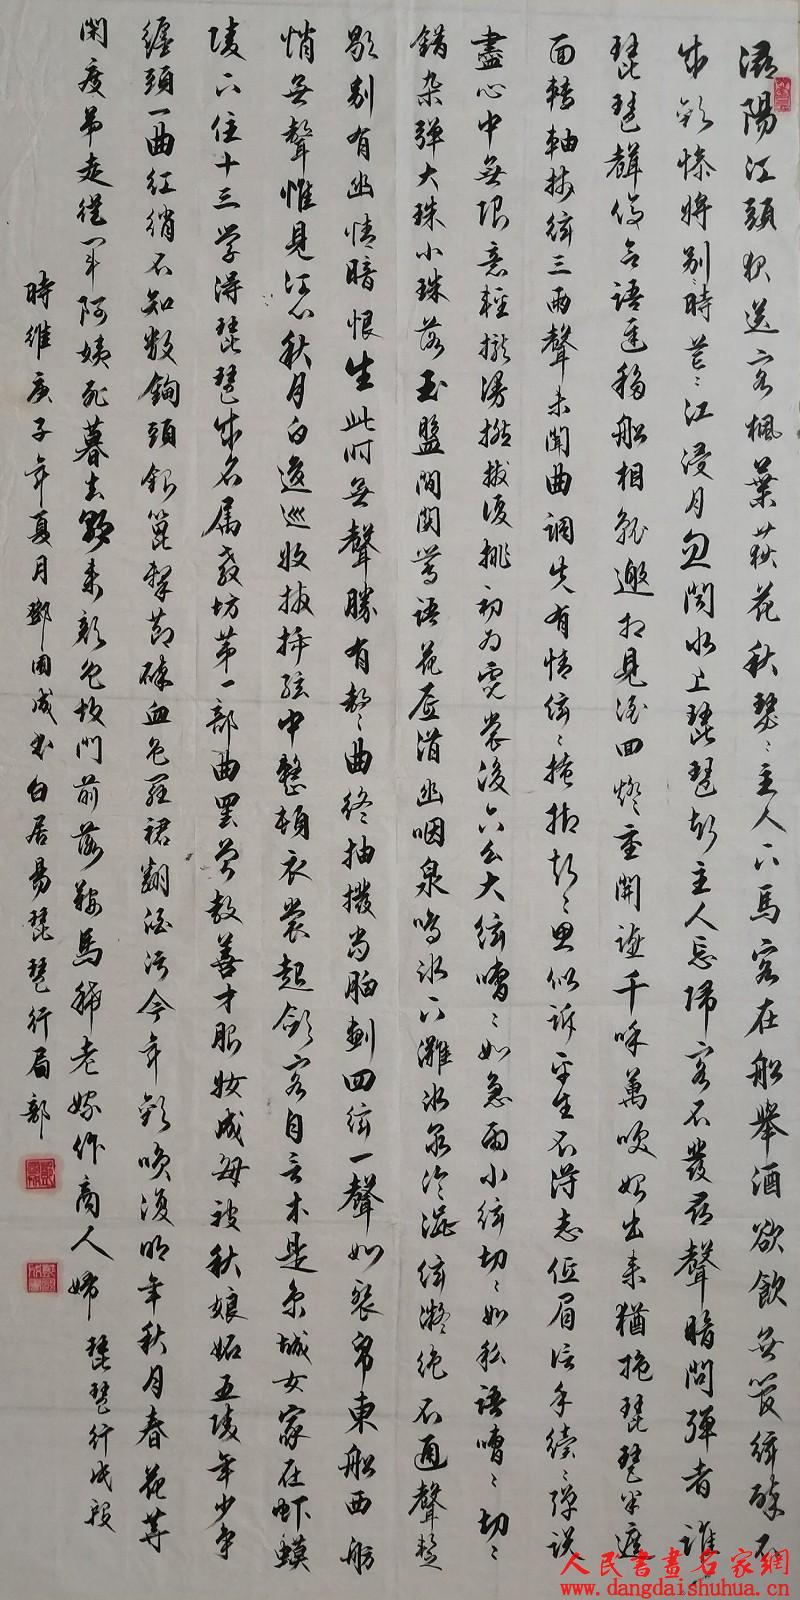 潯陽江頭夜送客楓葉荻花秋瑟〻主人下馬客在船舉酒欲飲無管絃醉不
成歡慘將別〻時茫〻江浸月忽聞水上琵琶聲主人忘歸客不發尋聲暗問彈者誰
琵琶聲停欲語遲移船相就邀相見酒回燈重開讌千呼萬喚始出來猶抱琵琶半遮
面轉軸撥絃三兩聲未聞曲調先有情絃〻掩抑聲〻思似訴平生不得志低眉信手續〻彈說
盡心中無限意輕攏慢撚抹復挑初為霓裳後六么大絃嘈〻如急雨小絃切〻如私語嘈〻切〻
錯杂彈大珠小珠落玉盤間関鶯語花底滑幽咽泉鳴冰下灘冰泉冷澀絃凝絕不通聲暫
歇別有幽情暗恨生此时無聲勝有聲〻曲終抽撥當胸劃四絃一聲如裂帛東船西舫
悄無聲惟見江心秋月白逡巡收撥插絃中整頓衣裳起斂客自言本是京城女家在蝦蟆
陵下住十三学得琵琶成名属教坊第一部曲罷曾教善才服妝成每被秋娘妬五陵年少争
纏頭一曲紅綃不知数鈿頭銀篦擊節碎血色羅裙翻酒污今年歡笑復明年秋月春花等
閑度弟走從軍阿姨死暮去朝來顏色故門前落鞍馬稀老嫁作商人婦 琵琶行成段
時維庚子年夏月鄧国成书白居易琵琶行局部
人民書畫名家網
www.dangdaishuhua.cn